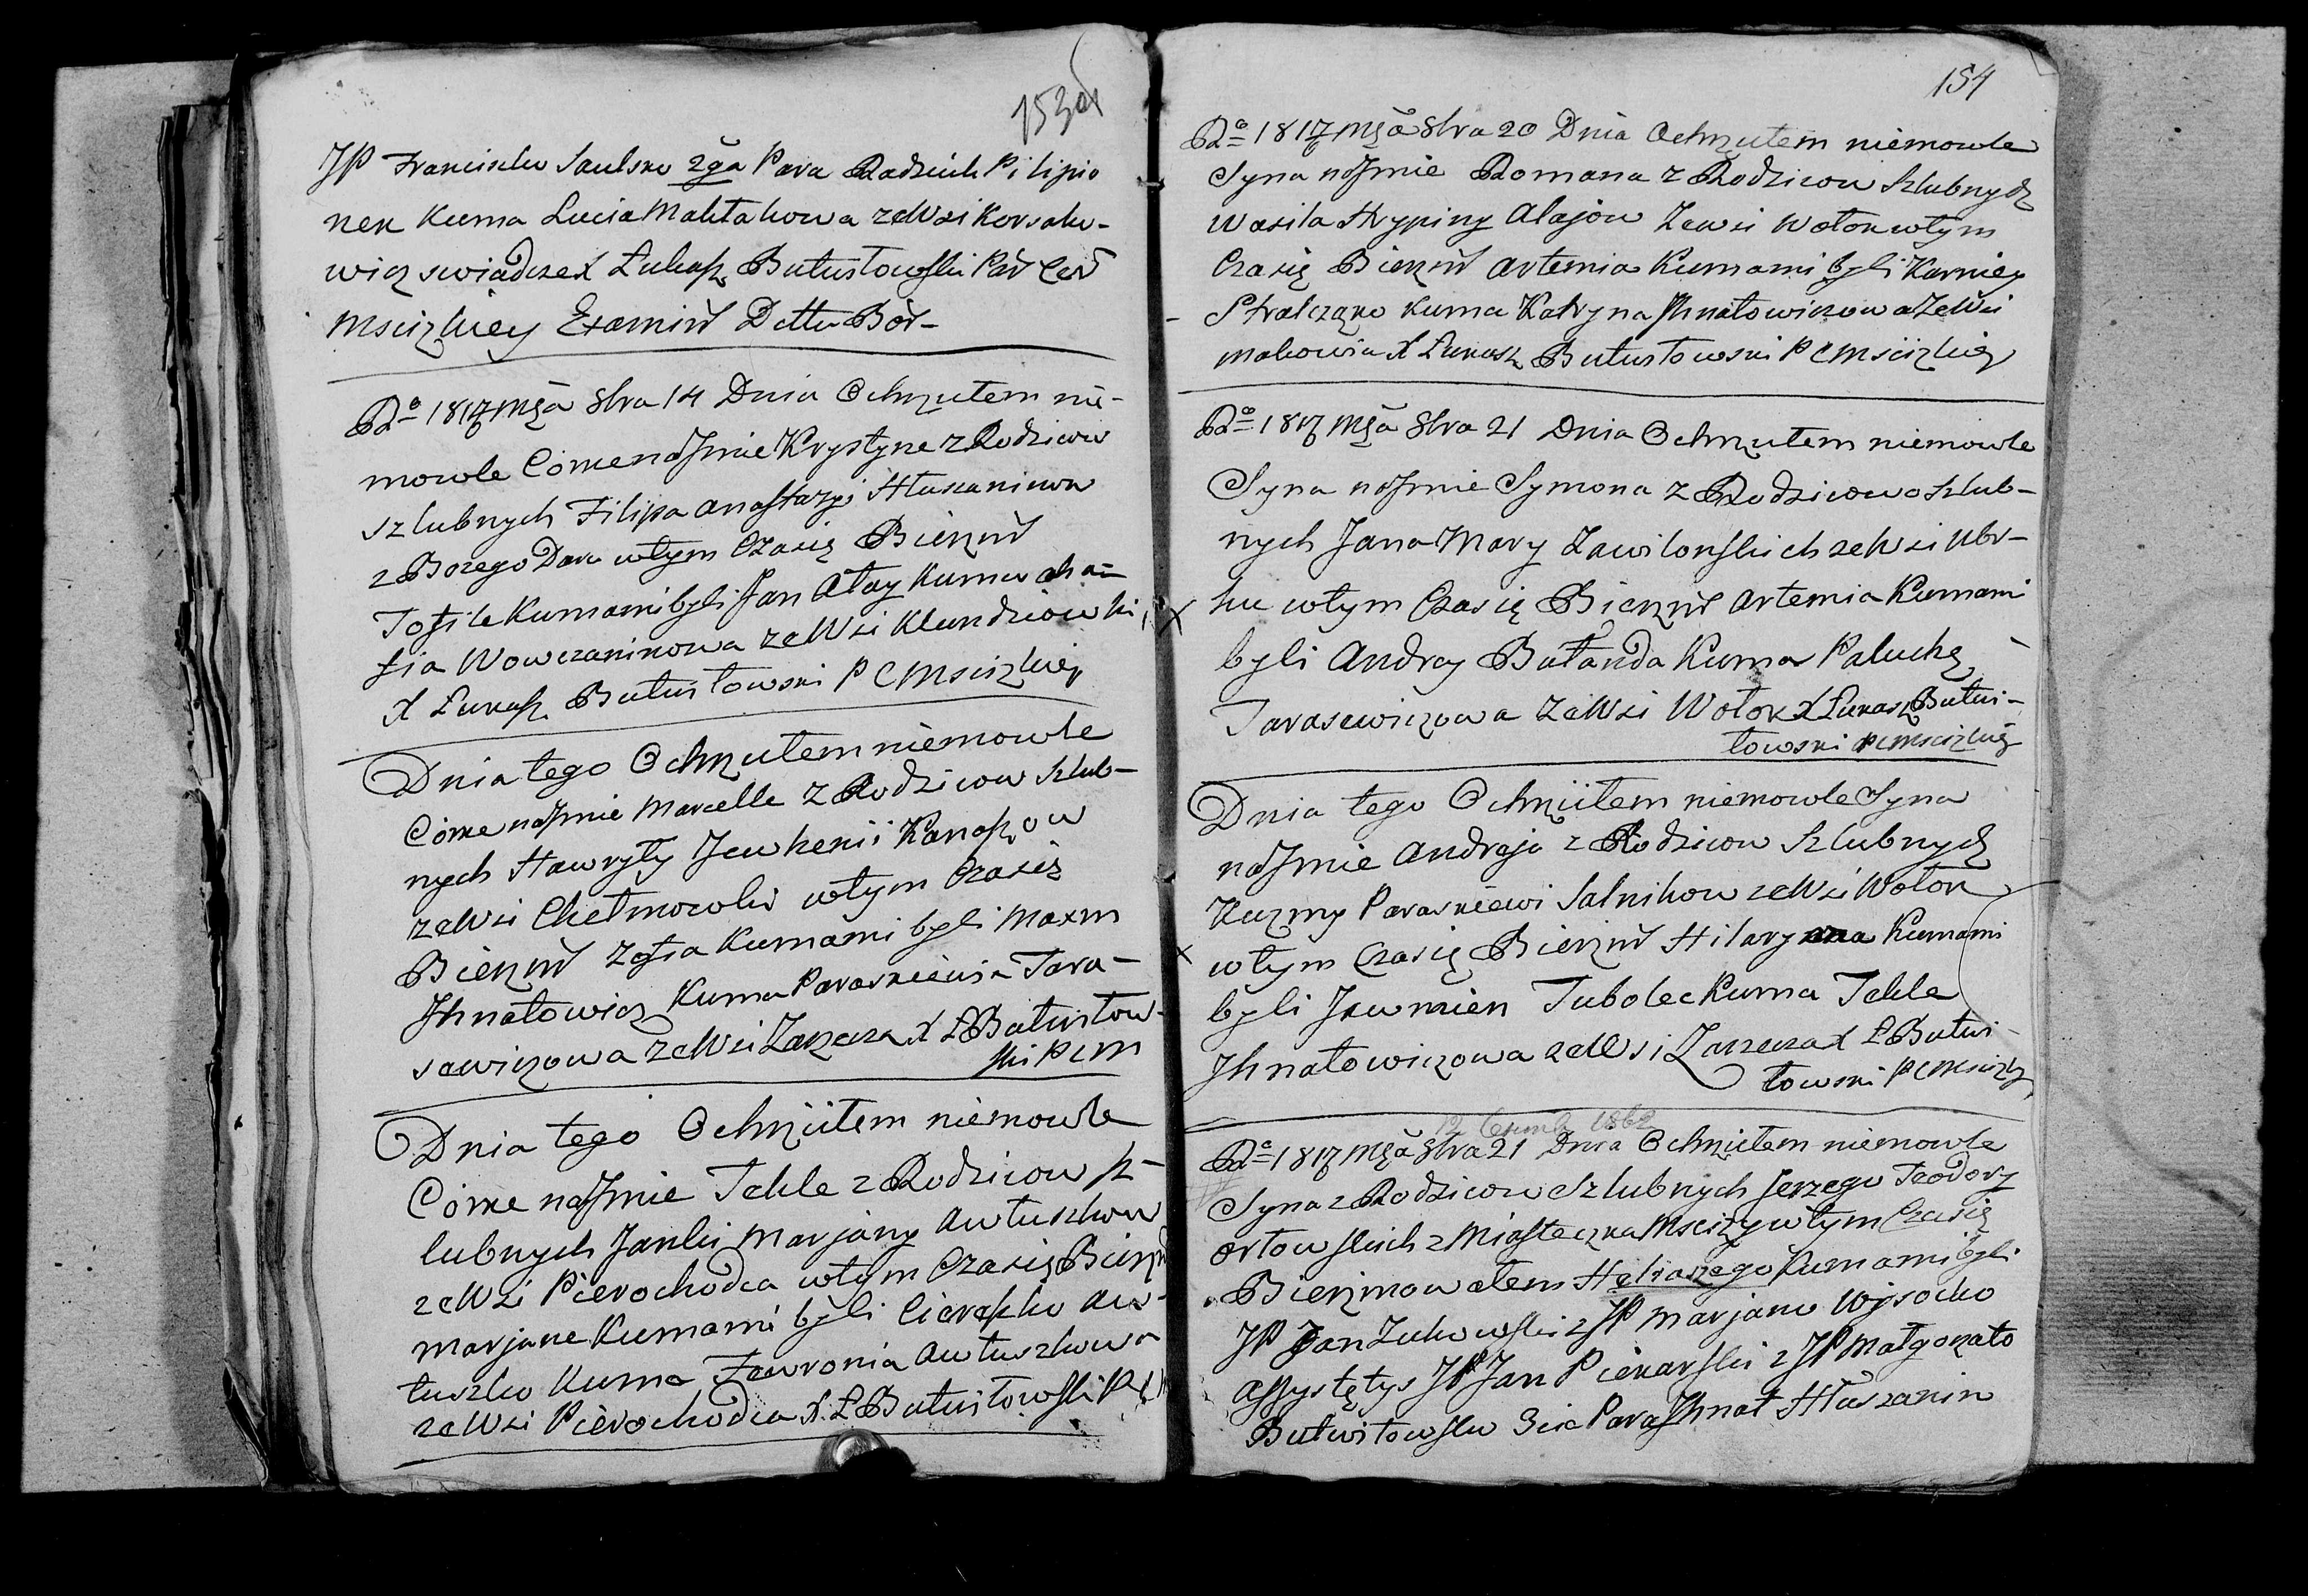 153
JP Franciszku Saulsko 2ga Para Radziuk Pilipio
nek Kuma Lucia Maktakowa ze Wsi Korsako-
wicz swiadcze X Łukasz Butwiłowski Par Cer
Msciżkiey Examin Dettu Bor-
Ro 1817 Mca 8bra 14 Dnia Ochrzciłem nie-
mowle Córke na Jmie Krystyne z Rodzicow
szlubnych Filipa Anastazyi Hłuszaninow
z Bozego Daru w tym Czasię Bierzm
Tofile Kumami byli Jan Ałay Kuma aha-
fia Wowczaninowa ze Wsi Klundziowki
X Łukasz Butwiłowski P C Msciżkiey
Dnia tego Ochrzciłem niemowle
Córke na Jmie Marcelle z Rodzicow Szlub-
nych Hawryły Jewhenii Kanaszow
ze Wsi Chełmowki w tym Czasię
Bierzm Zofia Kumami byli Maxm
Jhnatowicz Kuma Paraskiewia Tara-
sewiczowa ze Wsi Zarzecza X Ł Butwiłow-
ski P C M
Dnia tego Ochrzciłem niemowle
Córke na Jmie Tekle z Rodzicow sz-
lubnych Janki Marjany Awtuszkow
ze Wsi Pierechodca w tym Czasię Bierzm
Marjane Kumami byli Cieraszko Aw-
tuszko Kuma Fewronia Awtuszkowa
ze Wsi Pierochodca X. Ł Butwiłowski P C M
154
Ro 1817 Mca 8bra 20 Dnia Ochrzciłem niemowle
Syna na Jmie Romana z Rodzicow Szlubnych
Wasila Hrypiny Alajow Ze wsi Wołok w tym
Czasię Bierzm Artemia Kumami byli Karniey
Stralczano Kuma Katryna Jhnatowiczowa Ze Wsi
Makowia X Łukasz Butwiłowski P C Msciżkiey
Ro 1817 Mca 8bra 21 Dnia Ochrzciłem niemowle
Syna na Jmie Symona z Rodzicow Szlub-
nych Jana Mary Zawilonskich ze Wsi Ubr-
ku w tym Czasię Bierzm Artemia Kumami
byli Andrey Bułanda Kuma Paluchą
Tarasewiczowa Ze Wsi Wołok X Łukasz Butwi-
łowski P C Msciżkiey
Dnia tego Ochrzciłem niemowle Syna
na Jmie Andreja z Rodzicow Szlubnych
Kuzmy Paraskiewi Salnikow ze Wsi Wołok
w tym Czasię Bierzm Hilaryana Kumami
byli Jewmien Tubolec Kuma Tekle
Jhnatowiczowa ze Wsi Zarzecza X Ł Butwi-
łowski P C Msciżkiey
1862
Ro 1817 Mca 8bra 21 Dnia Ochrzciłem niemowle
Syna z Rodzicow Szlubnych Jerzego Teodory
Orłowskich z Miasteczka Msciży w tym Czasię
Bierzmowałem Hekaszego Kumami byli
JP Jan Zukowski z JP Marjano Wysocko
Assystętys JP Jan Piekarski z JP Małgorzato
Butwiłowsku 3cia Para Jhnat Hłuszanin